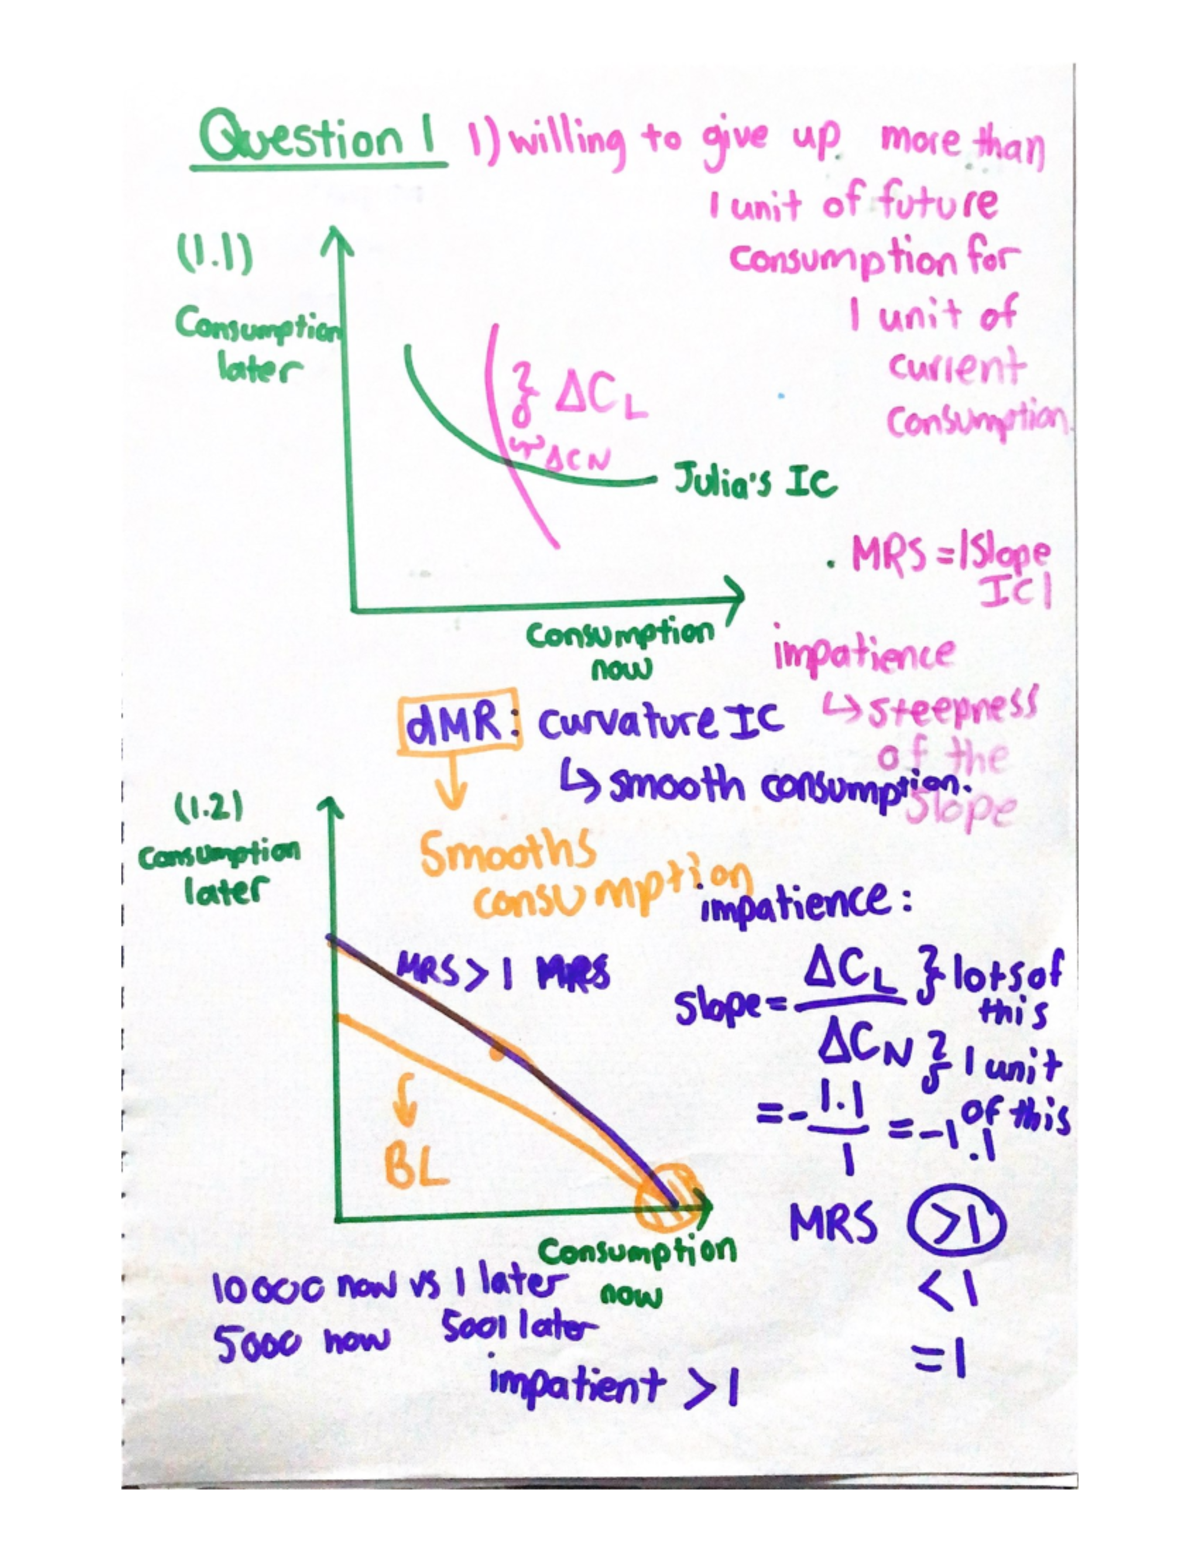 Question 1 1) willing to give up more than
1 unit of future
consumption for
1 unit of
current
consumption.
(1.1)
Consumption
later
} ΔCL
ΔCN
Julia's IC
MRS = |Slope
IC|
Consumption
now
impatience
↳ steepness
of the
slope
dMR: curvature IC
↳ smooth consumption.
Smooths
consumption
(1.2)
Consumption
later
MRS > 1 MRS
BL
Consumption
now
impatience:
slope = ΔCL } lots of
this
ΔCN } 1 unit
of this
= - 1.1 = -1.1
1
MRS >1
<1
=1
10000 now vs 1 later
5000 now 5001 later
impatient > 1